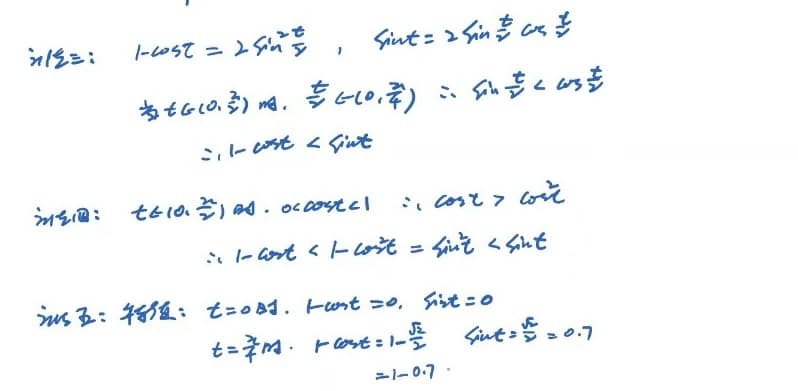 法三： 1-cost = 2sin²t/2 ， sint = 2sin t/2 cos t/2
当t∈(0,π/2)时. t/2∈(0,π/4) ∴ sin t/2 < cos t/2
∴ 1-cost < sint
法四： t∈(0,π/2)时. 0<cost<1 ∴ cost > cos²t
∴ 1-cost < 1-cos²t = sin²t < sint
法五：特值： t=0时. 1-cost=0. sint=0
t=π/4时. 1-cost=1-√2/2 sint=√2/2=0.7
=1-0.7.